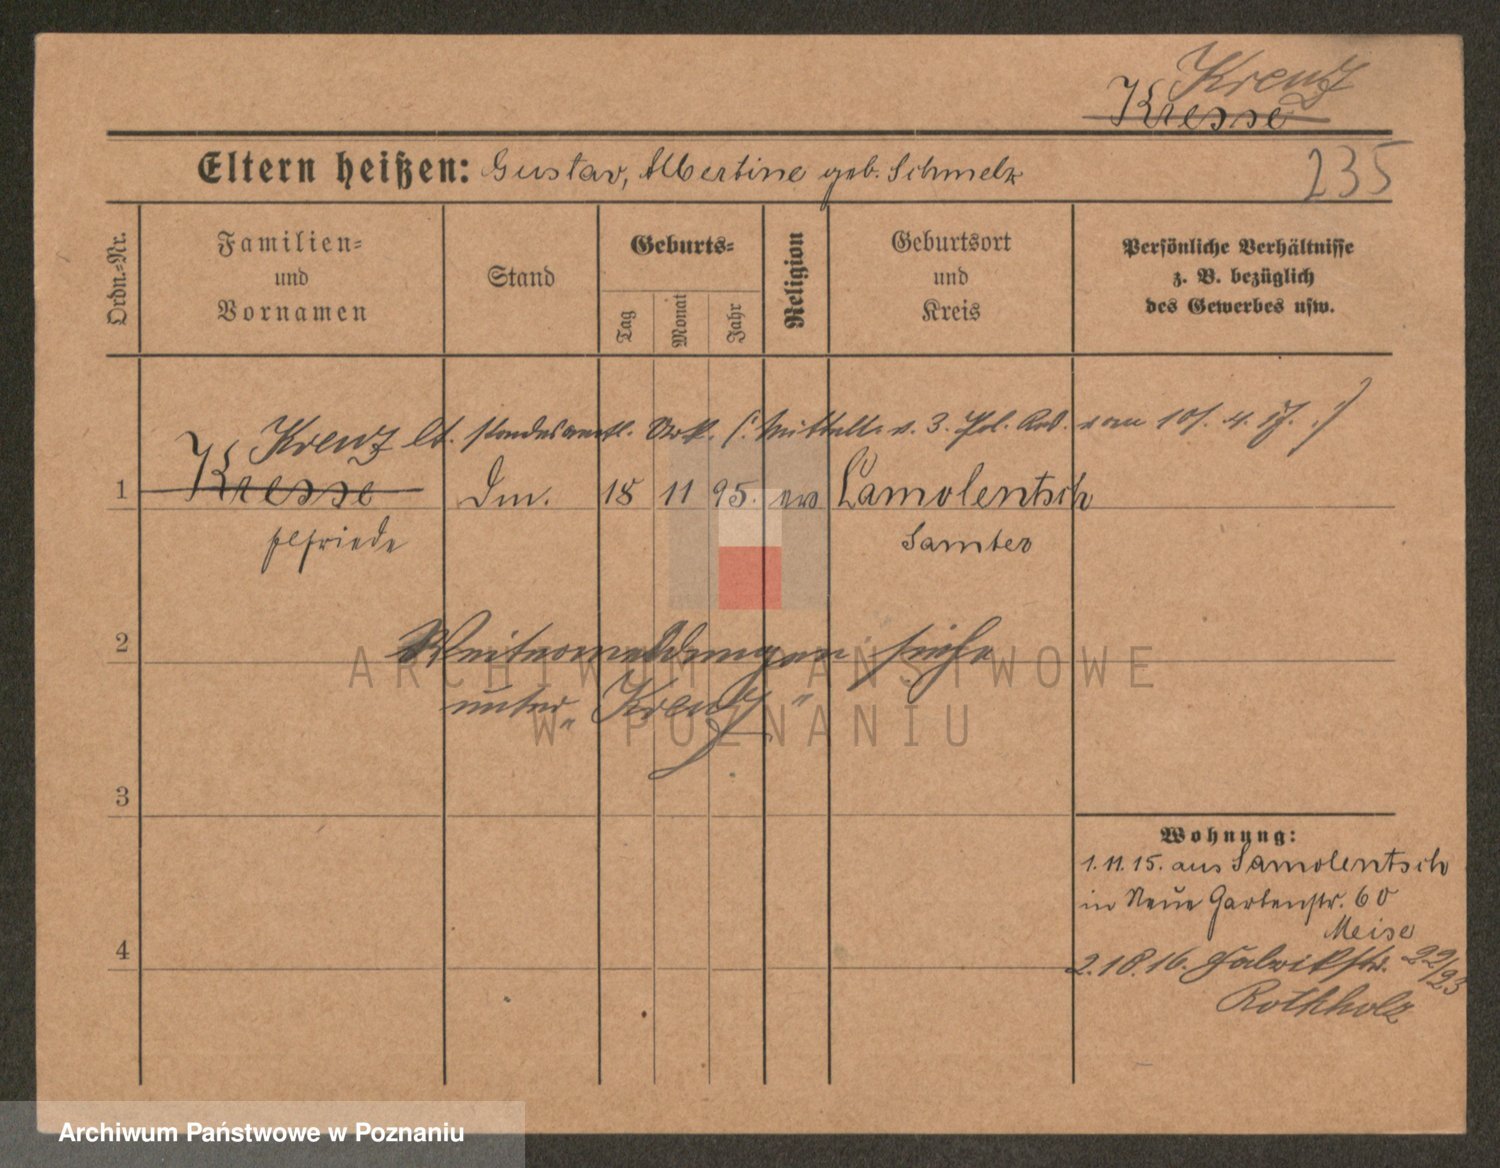 Krenz
Kresse
Eltern heißen: Gustav, Albertine geb. Schmelz
235
Ordn.-Nr.
Familien-
und
Vornamen
Stand
Geburts-
Tag
Monat
Jahr
Religion
Geburtsort
und
Kreis
Persönliche Verhältnisse
z. B. bezüglich
des Gewerbes usw.
Krenz lt. standesamtl. Urk. (: Mitteilg. v. 3. Pol. Rev. vom
1 Kresse Dm. 18 11 95. ev Samolentsch
Elfriede Samter
2 Weitermeldungen siehe
unter „Krenz"
ARCHIWUM PAŃSTWOWE
W POZNANIU
3
Wohnung:
1.11.15. aus Samolentsch
in Neue Gartenstr. 60
Meise
4
2.10.16. 22/23
Rothholz
Archiwum Państwowe w Poznaniu